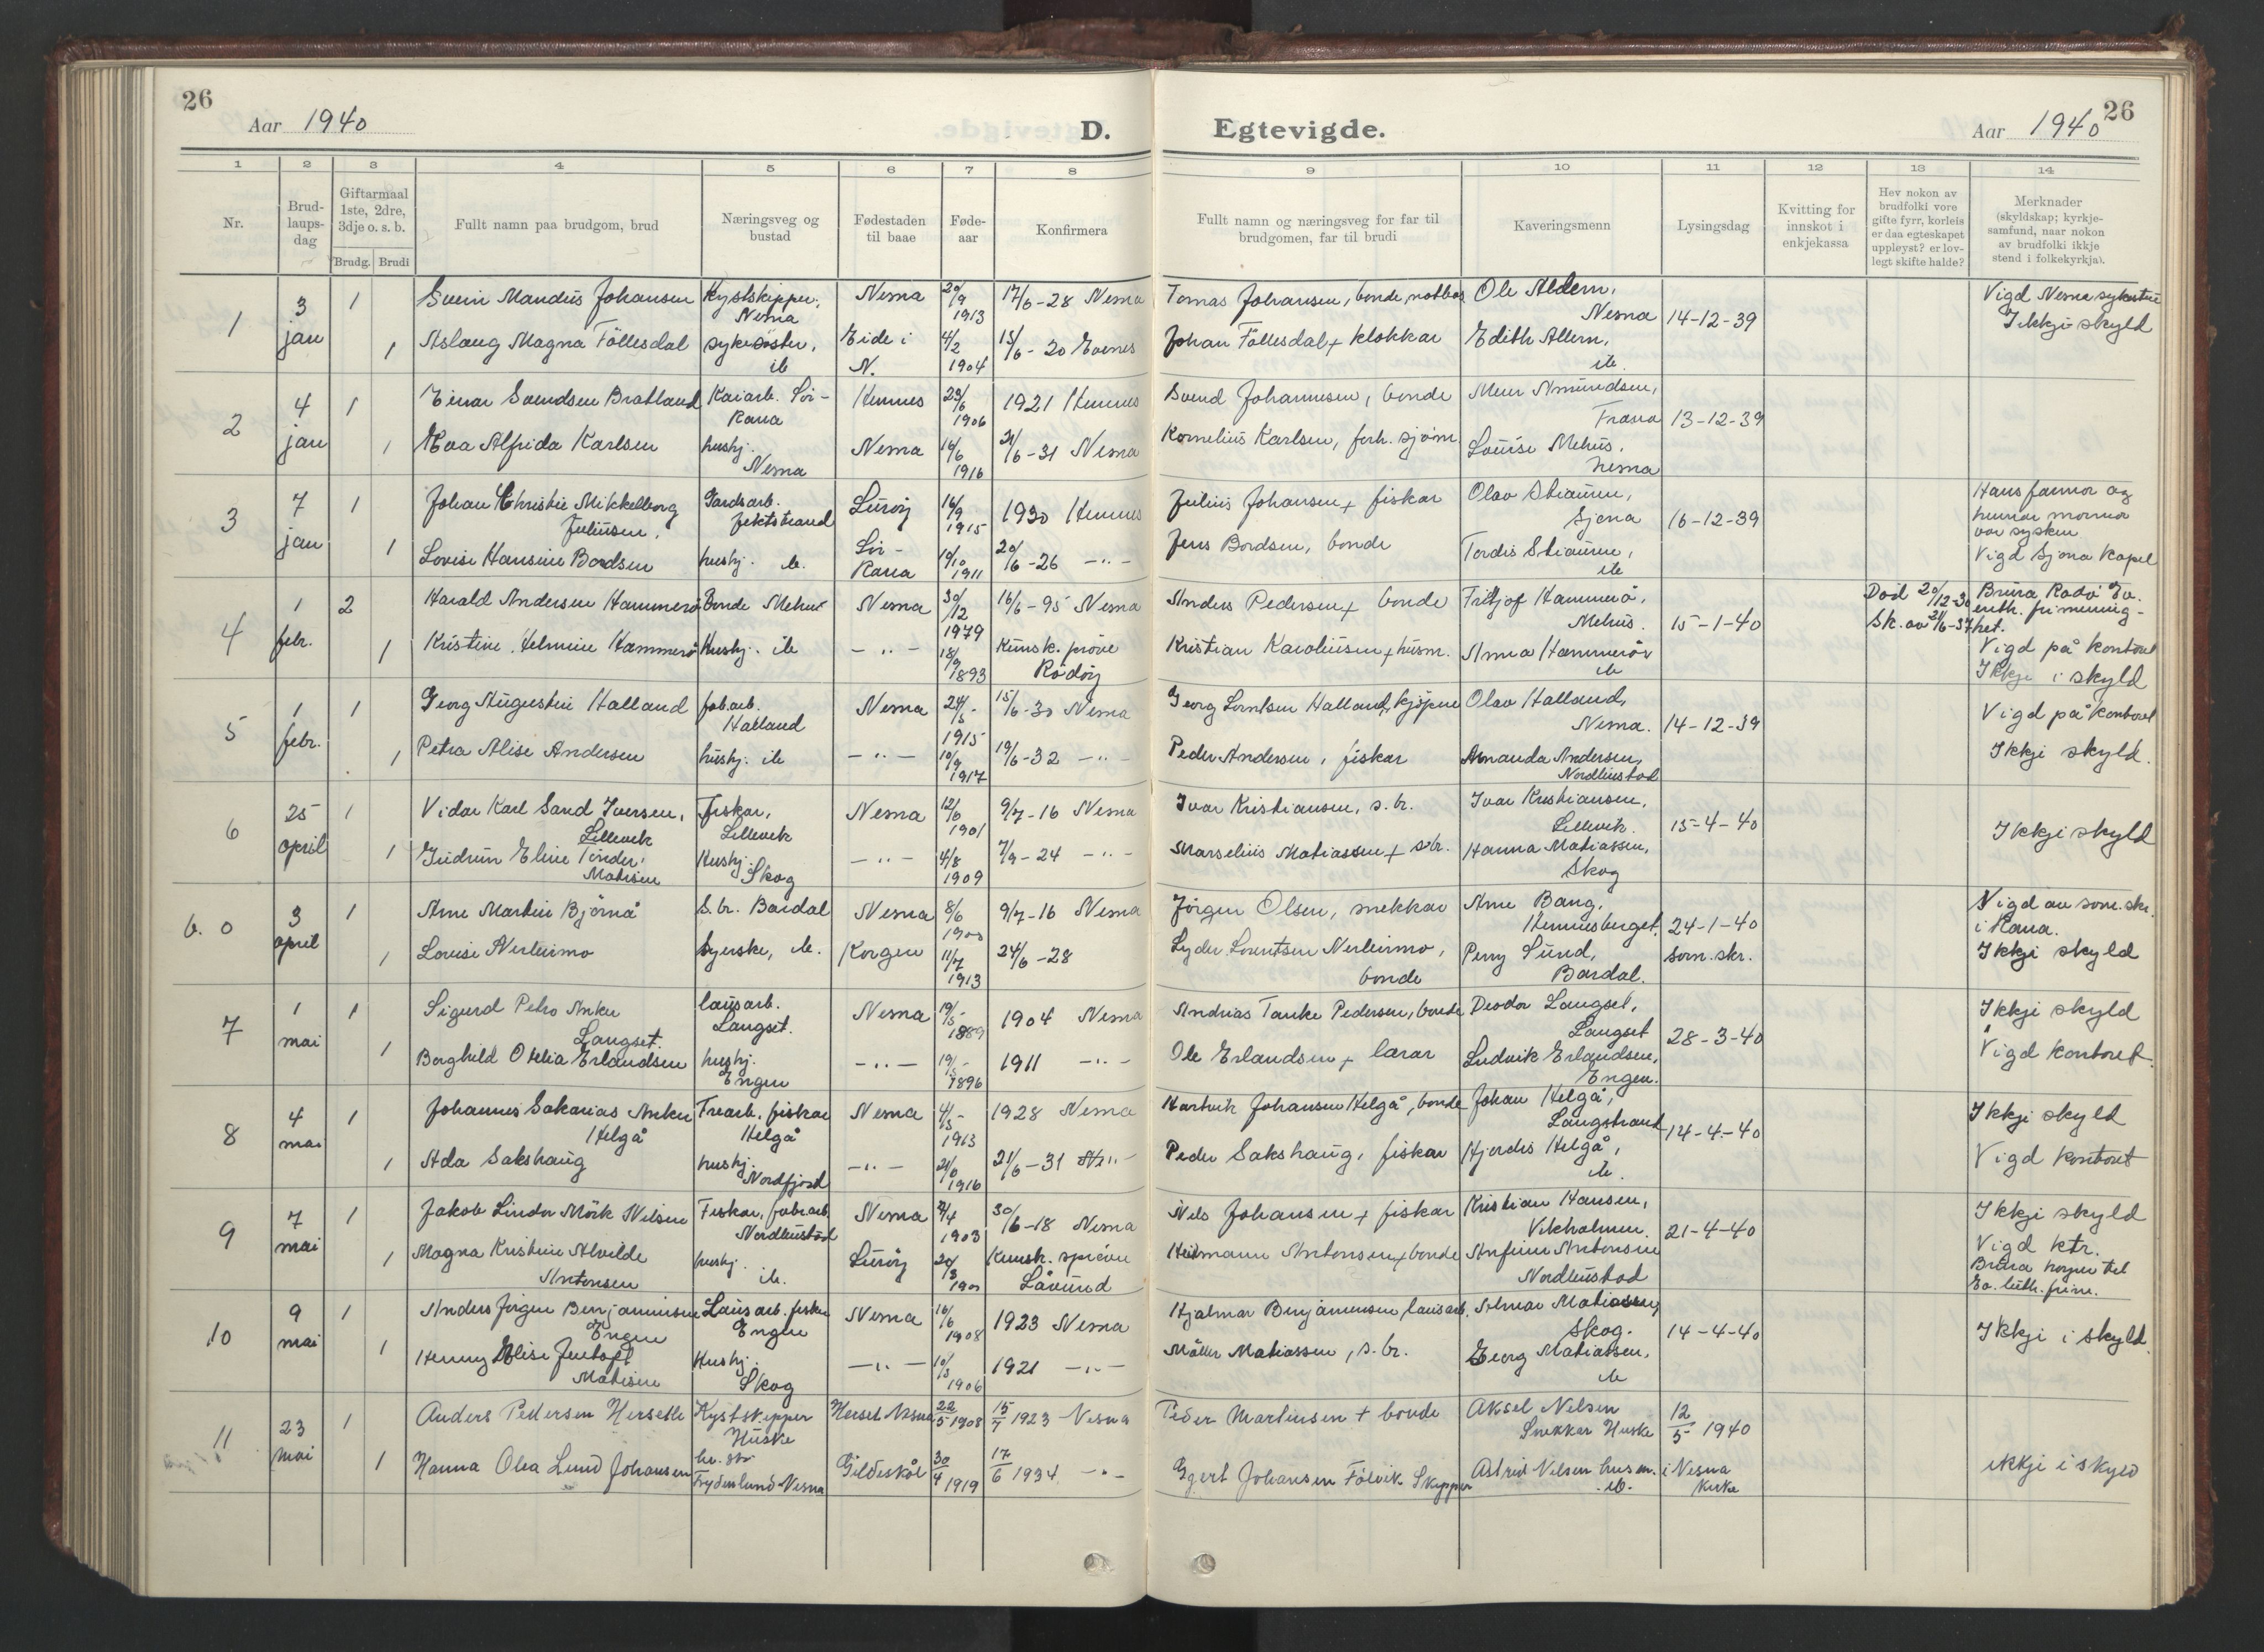 26
Aar 1940
D.
Egtevigde.
Aar 1940
26
1 2 3 4 5 6 7 8 9 10 11 12 13 14
Nr.
Brud-
laups-
dag
Giftarmaal
1ste, 2dre,
3dje o. s. b.
Brudg. Brudi
Fullt namn paa brudgom, brud
Næringsveg og
bustad
Fødestaden
til baae
Føde-
aar
Konfirmera
Fullt namn og næringsveg for far til
brudgomen, far til brudi
Kaveringsmenn
Lysingsdag
Kvitting for
innskot i
enkjekassa
Hev nokon av
brudfolki vore
gifte fyrr, korleis
er daa egteskapet
uppløyst? er lov-
legt skifte halde?
Merknader
(skyldskap; kyrkje-
samfund, naar nokon
av brudfolki ikkje
stend i folkekyrkja).
1 3 jan 1 Svein Mandius Johansen Kystskipper, Nesna Nesna 20/9 1913 17/6-28 Nesna Tomas Johansen, bonde, notbas Ole Aldern, Nesna 14-12-39 Vigd Nesna sykestue
Ikkje skyld
1 Aslaug Magna Föllesdal sykesöster, ib Eide i N. 4/2 1904 13/6-20 Evenes Johan Föllesdal + klokkar Edith Allern, ib.
2 4 jan 1 Einar Svendsen Bratland Kaiarb. Sör-Rana Hemnes 23/6 1906 1921 Hemnes Svend Johannesen, bonde Amundsen, 13-12-39
1 Eva Alfrida Karlsen hushj. Nesna Nesna 16/6 1916 21/6-31 Nesna Kornelius Karlsen, forh. sjöm. Lovise Mehus, Nesna
3 7 jan 1 Johan Christie Mikkelborg Juliusen, Gardsarb. Jektstrand Luröy 16/9 1915 1930 Hemnes Julius Johansen + fiskar Olav Stiauren, Sjona 16-12-39 Hans farmor og
hennar mormor
var sysken
Vigd Sjona Kapel
1 Lovise Hansine Bordsen hushj. ib. Sör-Rana 10/10 1911 20/6-26 -"- Jens Bordsen, bonde Tordis Stiauren, ib
4 1 febr. 2 Harald Andersen Hammerö Bonde Mehus Nesna 30/12 1979 16/6-95 Nesna Anders Pedersen + bonde Fritjof Hammerö, Mehus. 15-1-40 Död 20/12-30
Sk. av 21/6-37 Brura Rödö Ev.
luth. frimenig-
het.
Vigd på kontoret
Ikkje i skyld
1 Kristine Helmine Hammerö Hushj. ib -"- 18/9 1893 Kunsk. pröve Rödöy Kristian Karoliussen + husm. Anna Hammerö ib
5 1 febr. 1 Georg Augustin Halland fab.arb. Halland Nesna 24/5- 1915 15/6-30 Nesna Georg Lorntsen Halland, kjöpm Olav Halland, Nesna. 14-12-39 Vigd på kontoret
Ikkje skyld.
1 Petra Alise Andersen hushj. ib -"- 10/9 1917 19/6-32 -"- Peder Andersen, fiskar Amanda Andersen, Nordleustad
6 25 april 1 Vidar Karl Sand Iversen, Lillevik Fiskar, Lillevik Nesna 12/6 1901 9/7-16 Nesna Ivar Kristiansen, s.br. Ivar Kristiansen, Lillevik. 15-4-40 Ikkje skyld
1 Gudrun Eline Tönder Matisen Hushj. Skog -"- 4/8 1909 7/9-24 -"- Marselius Matiassen + s.br. Hanna Matiassen, Skog
b. 0 3 april 1 Arne Martin Björnå S.br. Bardal Nesna 8/6 1900 9/7-16 Nesna Jörgen Olsen, snekkar Arne Bang, Hemnesberget. 24-1-40 Vigd av sorn.skr.
i Rana.
Ikkje skyld
1 Lovise Nerleirmo Syerske, ib. Korgen 11/7 1913 24/6-28 Lyder Lorentsen Nerleirmo, bonde Perry Sund, Bardal. sorn.skr.
7 1 mai 1 Sigurd Petro Anker Langset. lausarb. Langset. Nesna 19/5- 1889 1904 Nesna Andrias Tanke Pedersen, bonde Deodor Langset, Langset 28-3-40 Ikkje skyld
Vigd kontoret
1 Borghild Otelia Erlandsen hushj. Engen -"- 19/5- 1896 1911 -"- Ole Erlandsen + lærar Ludvik Erlandsen, Engen.
8 4 mai 1 Johannes Sakarias Anker Helgå Trearb. fiskar Helgå Nesna 4/5- 1913 1928 Nesna Hartvik Johansen Helgå, bonde Johan Helgå, Langstrand 14-4-40 Ikkje skyld
Vigd kontoret
1 Ada Sakshaug hushj. Nordfjord -"- 21/6 1916 21/6-31 -"- Peder Sakshaug, fiskar Hjördis Helgå, ib.
9 7 mai 1 Jakob Lindor Mörk Nilsen Fiskar, fabr.arb. Nordleustad Nesna 2/4 1903 30/6-18 Nesna Nils Johansen + fiskar Kristian Hansen, Vikholmen. 21-4-40 Ikkje skyld
Vigd ktr.
Brura höyrer til
Ev. luth. frim.
1 Magna Kristine Alvilde Antonsen hushj. ib. Luröy 20/3 Kunsk. spröve Lövund Heitmann Antonsen + bonde Anfinn Antonsen Nordleustad
10 9 mai 1 Anders Jörgen Benjaminsen Engen Lausarb. fiskar Engen Nesna 16/6 1908 1923 Nesna Hjalmar Benjaminsen lausarb. Almar Matiassen, Skog. 14-4-40 Ikkje i skyld
1 Henny Elise Jentoft Matisen Hushj. Skog -"- 10/3 1906 1921 -"- Möller Matiassen, s.br. Georg Matiassen, ib
11 23 mai 1 Anders Pettersen Hersetle Kystskipper Huske Herset Nesna 22/5 1908 15/7 1923 Nesna Peder Martinsen + bonde Aksel Nelsen Snekkar Huske 12/5 1940 ikkje i skyld
1 Hanna Olea Lund Johansen Frydenlund Nesna Gildeskål 30/4 1919 17/6 1934 -"- Egert Johansen Fölvik Skipper Astrid Nelsen husm. ib. i Nesna Kirke